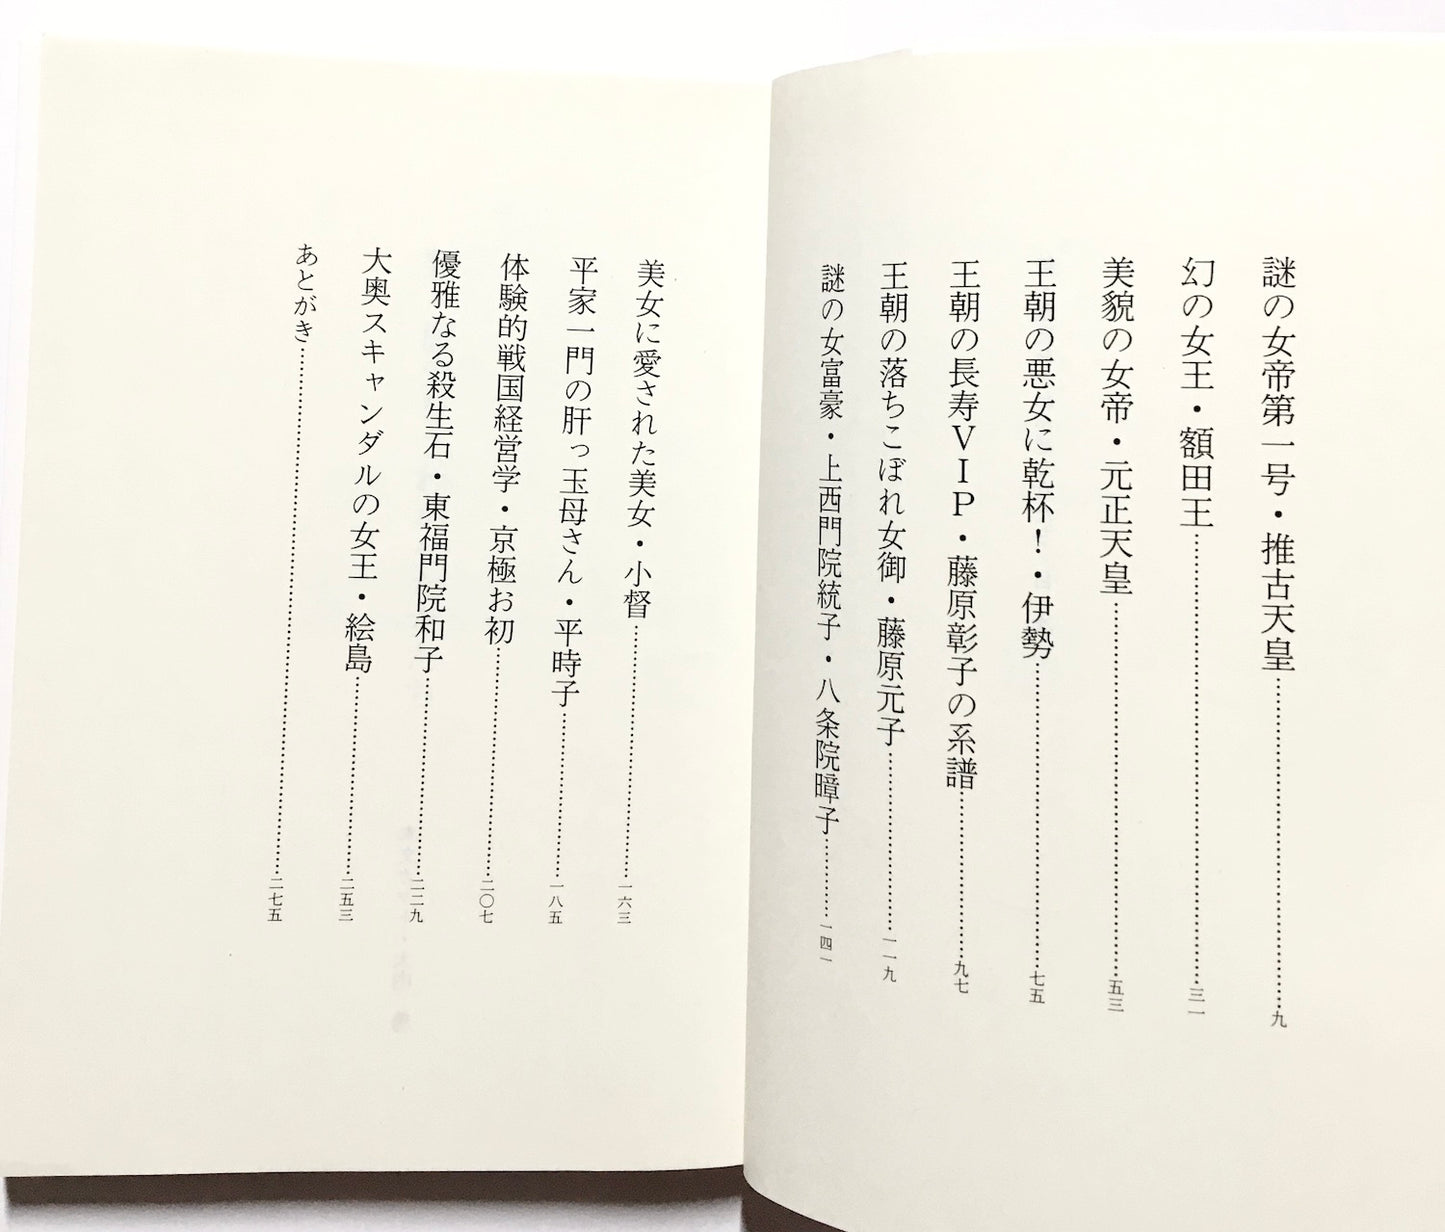 謎の女帝第一号・推古天皇…………九
幻の女王・額田王…………三一
美貌の女帝・元正天皇…………五三
王朝の悪女に乾杯!・伊勢…………七五
王朝の長寿VIP・藤原彰子の系譜…………九七
王朝の落ちこぼれ女御・藤原元子…………一一九
謎の女富豪・上西門院統子・八条院暲子…………一四一
美女に愛された美女・小督…………一六三
平家一門の肝っ玉母さん・平時子…………一八五
体験的戦国経営学・京極お初…………二〇七
優雅なる殺生石・東福門院和子…………二二九
大奥スキャンダルの女王・絵島…………二五三
あとがき…………二七五